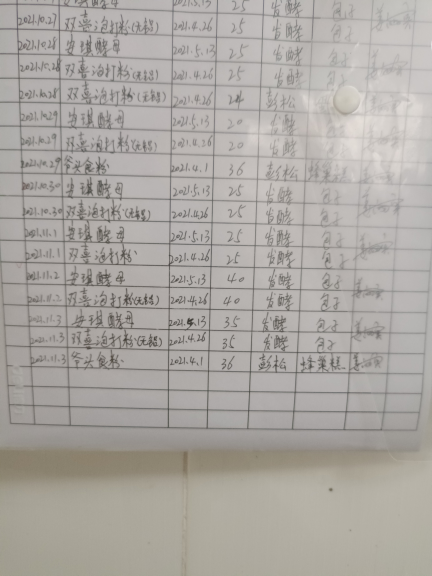 2021.5.13 25 发酵 包子
2021.10.27 双喜泡打粉(无铝) 2021.4.26 25 发酵 包子
2021.10.28 安琪酵母 2021.5.13 25 发酵 包子
2021.10.28 双喜泡打粉(无铝) 2021.4.26 25 发酵 包子
2021.10.28 双喜泡打粉(无铝) 2021.4.26 彭松
2021.10.29 安琪酵母 2021.5.13 20 发酵 包子
2021.10.29 双喜泡打粉(无铝) 2021.4.26 20 发酵 包子
2021.10.29 爷头食粉 2021.4.1 36 彭松 蜂巢糕
2021.10.30 安琪酵母 2021.5.13 25 发酵 包子
2021.10.30 双喜泡打粉(无铝) 2021.4.26 25 发酵 包子
2021.11.1 安琪酵母 2021.5.13 25 发酵 包子
2021.11.1 双喜泡打粉 2021.4.26 25 发酵 包子
2021.11.2 安琪酵母 2021.5.13 40 发酵 包子
2021.11.2 双喜泡打粉(无铝) 2021.4.26 40 发酵 包子
2021.11.3 安琪酵母 2021.5.13 35 发酵 包子
2021.11.3 双喜泡打粉(无铝) 2021.4.26 35 发酵 包子
2021.11.3 爷头食粉 2021.4.1 36 彭松 蜂巢糕